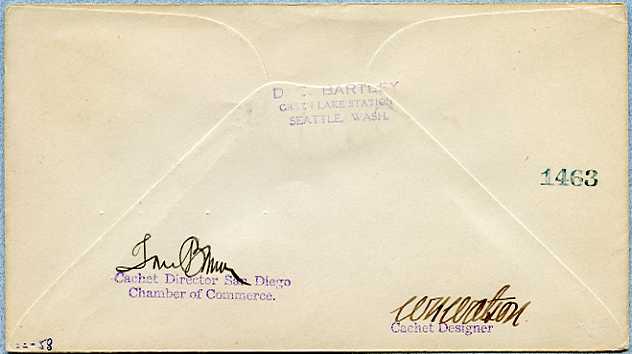 BARTLEY
LAKE STATION
SEATTLE, WASH.
1463
Cachet Director San Diego
Chamber of Commerce.
Cachet Designer
58